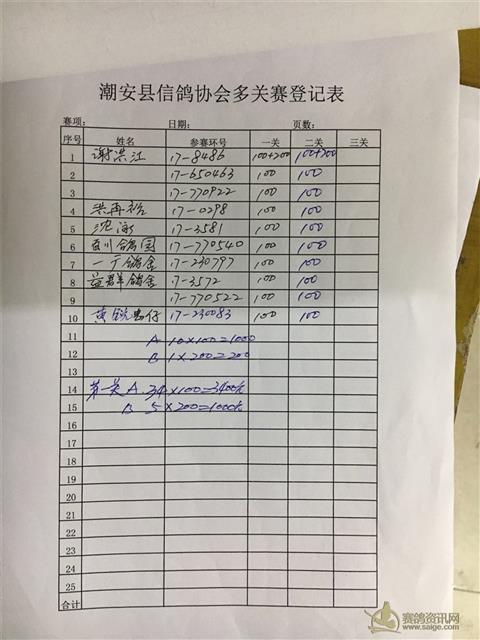 潮安县信鸽协会多关赛登记表
赛项： 日期： 页数：
序号 姓名 参赛环号 一关 二关 三关
1 谢洪江 17-8486 100+200 100+200
2 17-650463 100 100
3 17-770922 100 100
4 洪再裕 17-0298 100 100
5 17-3581 100 100
6 百川鸽园 17-770540 100 100
7 一丁鸽舍 17-230797 100 100
8 鸽舍 17-3572 100 100
9 17-770522 100 100
10 黄 仔 17-230083 100 100
11
12 A 10×100=1000
13 B 1×200=200
14 第一关A 34×100=3400元
15 B 5×200=1000元
16
17
18
19
20
21
22
23
24
25
合计
赛鸽资讯网
www.saige.com